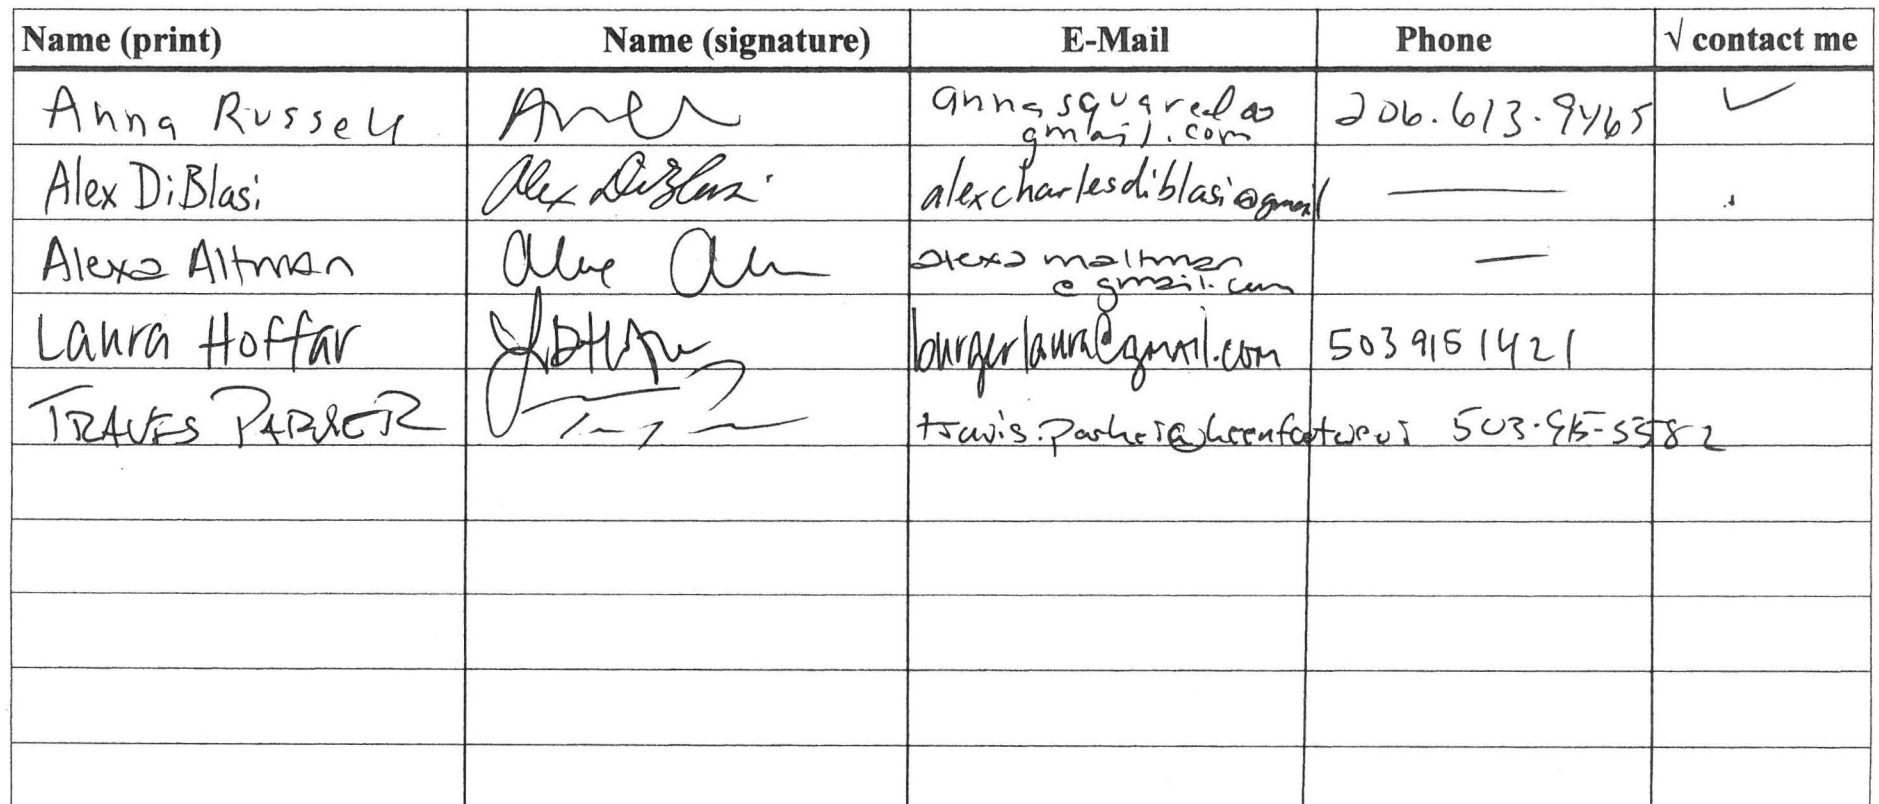 Name (print) Name (signature) E-Mail Phone √ contact me
Anna Russell annasquared@ 206.613.9465 ✓
gmail.com
Alex DiBlasi Alex DiBlasi alexcharlesdiblasi@gmail —
Alexa Altman alexamaltman —
@gmail.com
Laura Hoffar burgerlaura@gmail.com 503 915 1421
TRAVIS PARKER travis.parker@keenfootwear